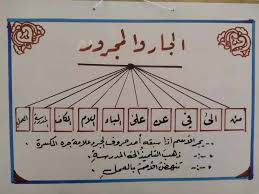 الجار والمجرور
من إلى في عن على الباء اللام الكاف المدرسة العمل
-:- يجر الاسم إذا سبقه أحد حروف الجر وعلامة جره الكسرة .
-:- ذهب التلميذ إلى المدرسة .
-:- تنهض الأمم بالعمل .